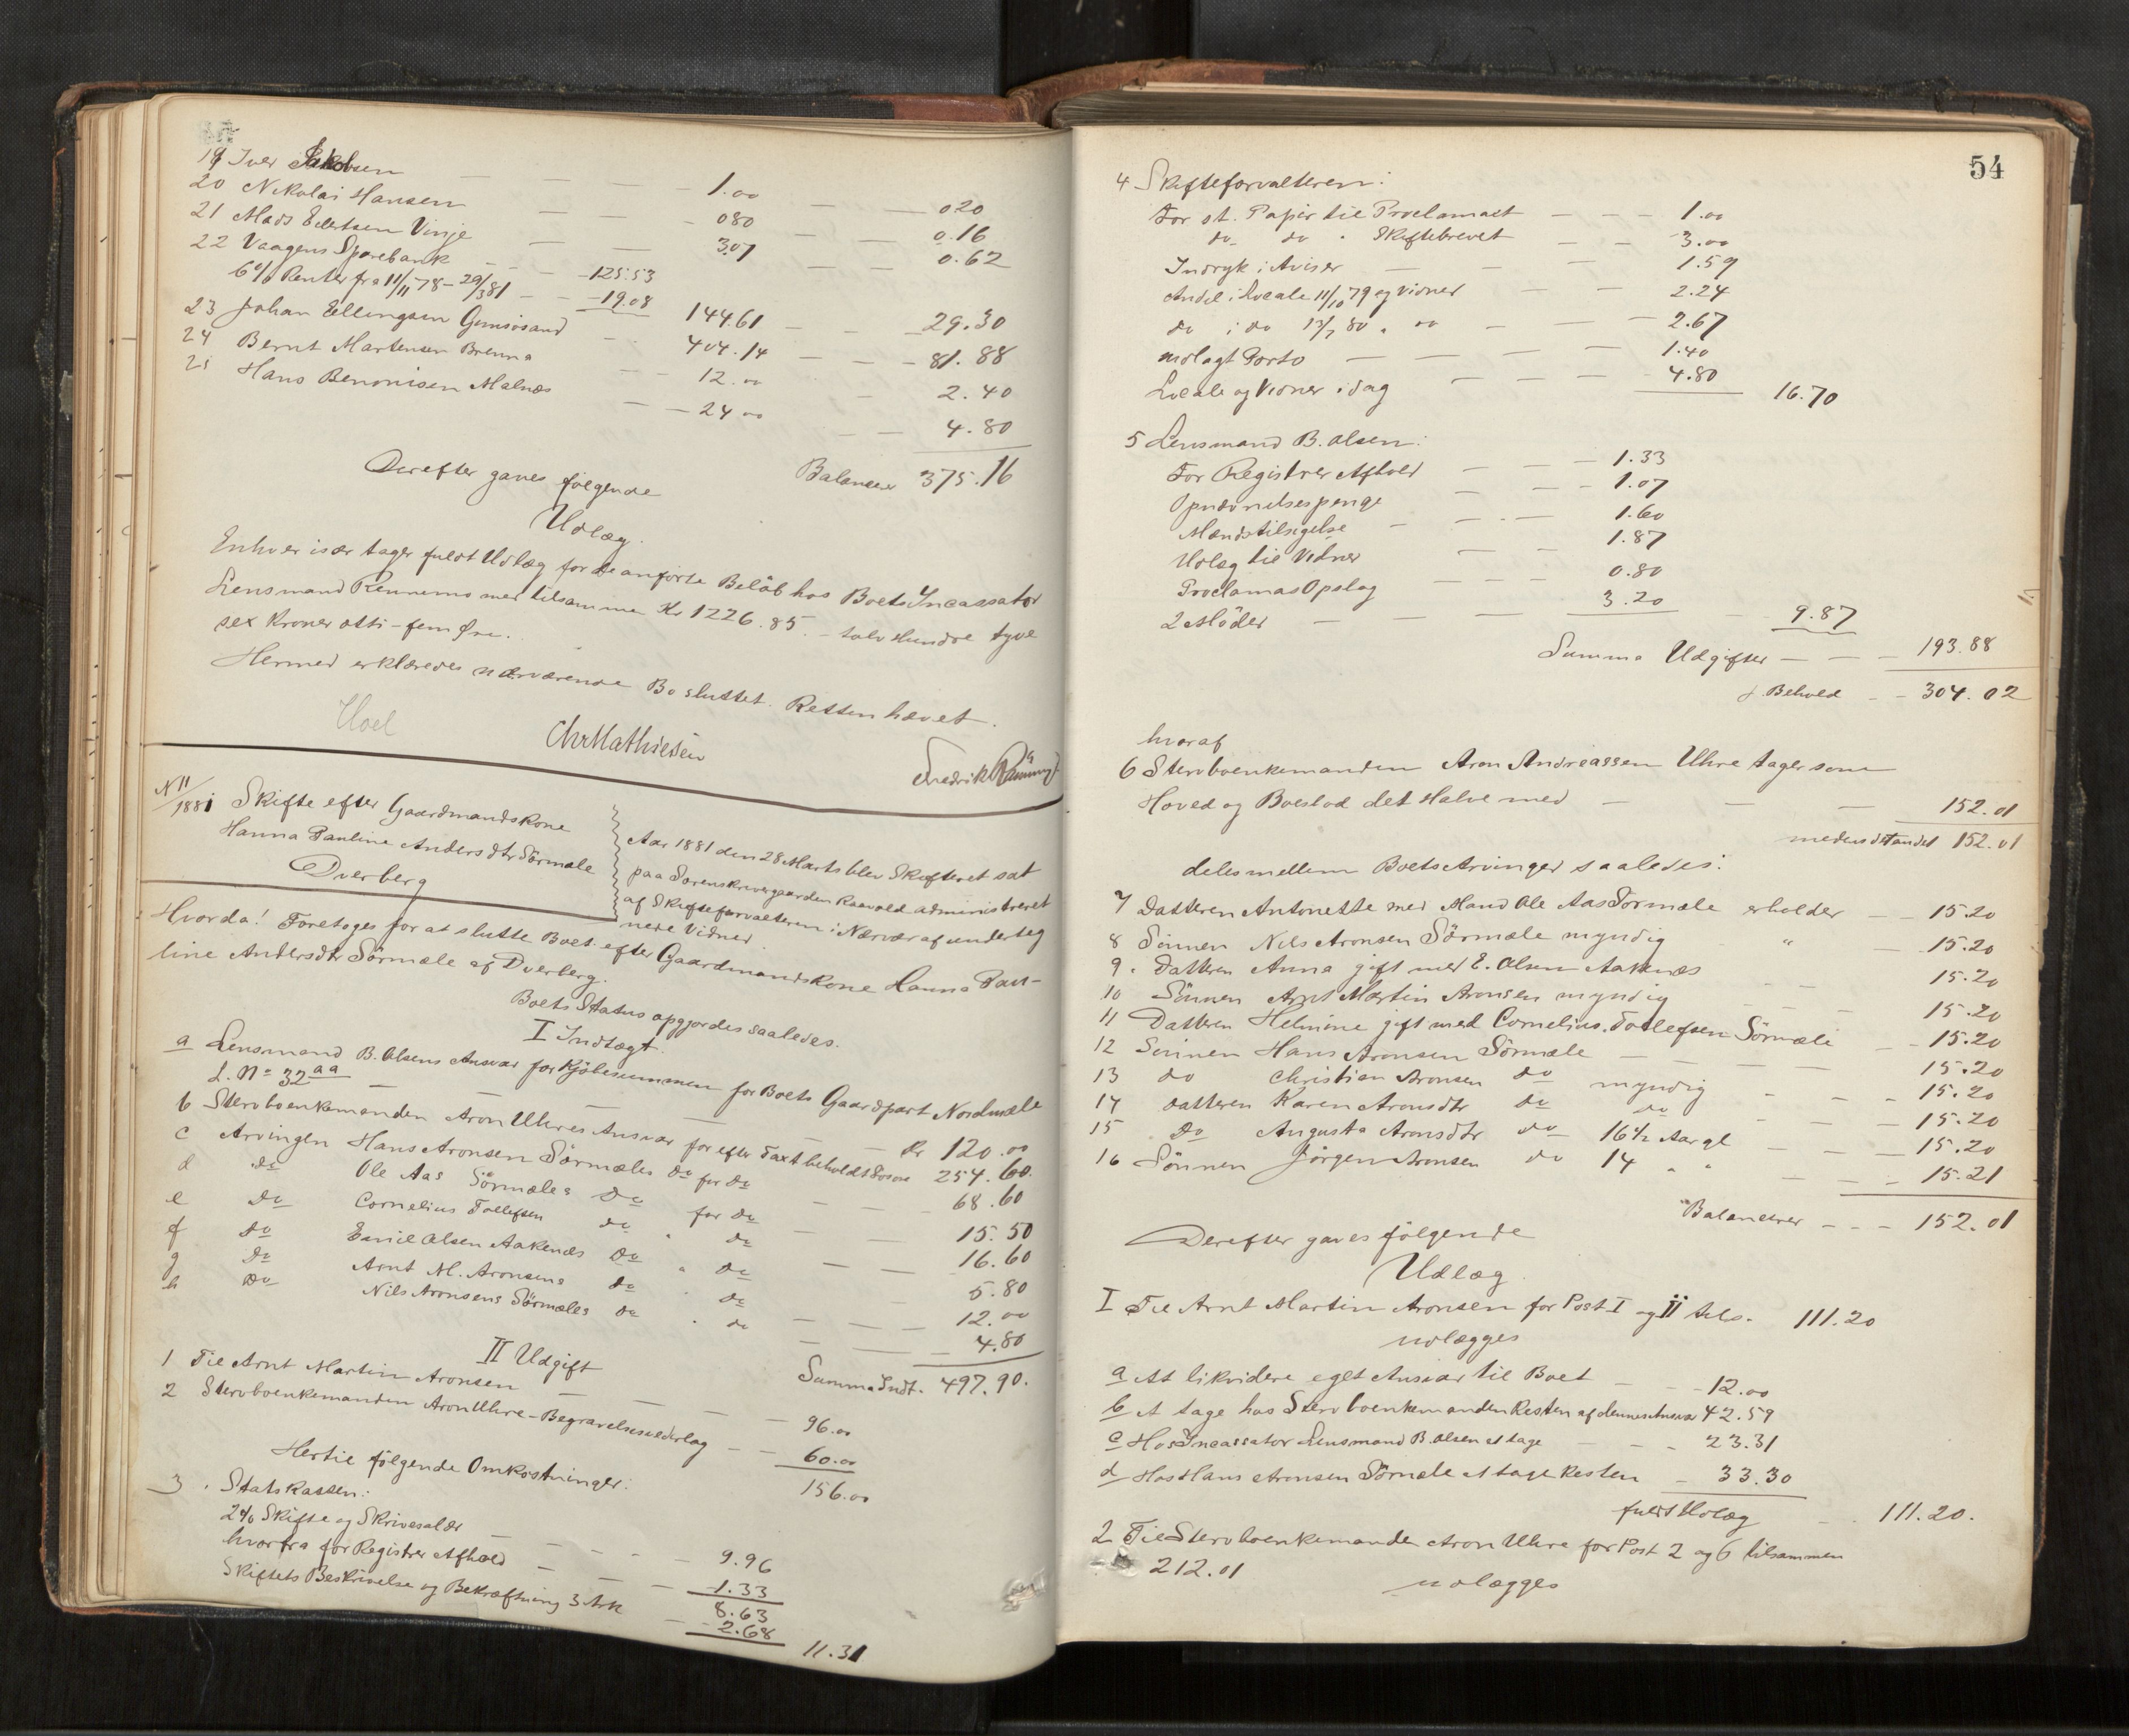 19 Iver Jakobsen — — — 1.00 — — 020
20 Nikolai Hansen — — — 080 — — 0.16
21 Mads Edertsen Vinje — — 3.07 — — 0.62
22 Vaagens Sparebank — — 125.53
6% Renter fra 11/11 78 - 29/3 81 — 19.08 144.61 — — 29.30
23 Johan Ellingsen Gimsösand — 404.14 — — 81.88
24 Bernt Martensen Brenna — — 12.00 — 2.40
25 Hans Benonisen Malnæs — — 24.00 — — 4.80
Balancerer 375.16
Derefter gaves følgende
Udlæg.
Enhver især tager fuldt Udlæg for de anførte Beløb hos Boets Incassator
Lensmand Rennemo med tilsammen Kr 1226.85. - tolv Hundre tyve
sex Kroner otti-fem Øre.
Hermed erklæredes nærværende Bo sluttet. Retten hævet.
Hoel
Chr Mathiesen
Fredrik
N 11/1881 Skifte efter Gaardmandskone
Hanna Pauline Andersdtr Sörmæle
Dverberg
Aar 1881 den 28 Marts blev Skifteret sat
paa Sorenskrivergaarden Kaavold administreret
af Skifteforvalteren i Nærvær af underteg
nede Vidner.
Hvorda! Foretoges for at slutte Boet efter Gaardmandskone Hanna Pau-
line Andersdtr Sörmæle af Dverberg.
Boets Status opgjordes saaledes.
I Indtægt.
a Lensmand B. Olsens Ansvar for Kjöbesummen for Boets Gaardpart Nordmæle
L. No 32 aa — — — Kr 120.00
b Stervboenkemanden Aron Uhres Ansvar for efter Taxt beholdt Losøre 254.60.
c Arvingen Hans Aronsen Sörmæles do for do — — — 68.60
d do Ole Aas Sörmæles do for do — — 15.50
e do Cornelius Tollefsen do " do — — 16.60
f do Emil Olsen Aakenæs do " do — 5.80
g do Arnt M. Aronsens do " do — — — 12.00
h do Nils Aronsens Sörmæles do " do — — 4.80
Summa Indt. 497.90.
II Udgift
1 Til Arnt Martin Aronsen — — — — 96.00
2 Stervboenkemanden Aron Uhre - Begravelsesvederlag — — 60.00
156.00
Hertil følgende Omkostninger:
3 . Statskassen:
2% Skifte og Skriversalær — — — — 9.96
hvorfra for Registrer Afhold — — — 1.33
8.63
Skiftets Beskrivelse og Bekræftning 3 Ark — 2.68 11.31
54
4 Skifteforvalteren:
For st. Papir til Proclamaet — — — 1.00
do do " Skiftebrevet — — 3.00
Indryk i Aviser — — — 1.59
Andel i Locale 11/10 79 og Vidner — — 2.24
do i do 13/7 80 " do — — — 2.67
Udlagt Porto — — — — 1.40
Locale og Vidner idag — — — — 4.80 16.70
5 Lensmand B. Olsen:
For Registrer Afhold — — — 1.33
Opnævnelsespenge — — — 1.07
Mandstilsigelse — — — 1.60
Udlæg til Vidner — — 1.87
Proclamas Opslag — — — 0.80
2 Möder — — — 3.20 — 9.87
Summa Udgifter — — — 193.88
i Behold — — 304.02
hvoraf
6 Stervboenkemanden Aron Andreassen Uhre tager som
Hoved og Boeslod det Halve med — — — 152.01
medens det andet 152.01
deles mellem Boets Arvinger saaledes:
7 Datteren Antonette med Mand Ole Aas Sörmæle erholder — — 15.20
8 Sönnen Nils Aronsen Sörmæle myndig " — 15.20
9. Datteren Anna gift med E. Olsen Aakenæs — — 15.20
10 Sönnen Arnt Martin Aronsen myndig — — — 15.20
11 Datteren Helmine gift med Cornelius Tollefsen Sörmæle — — 15.20
12 Sönnen Hans Aronsen Sörmæle — — — — 15.20
13 do Christian Aronsen do myndig — — — 15.20
14 Datteren Karen Aronsdtr do do — — 15.20
15 do Augusta Aronsdtr do 16 1/2 Aar gl — — — 15.20
16 Sönnen Jörgen Aronsen do 14 " " — — — 15.21
Balancerer — — — 152.01
Derefter gaves følgende
Udlæg.
I Til Arnt Martin Aronsen for Post I og II tils. 111.20
udlægges
a At likvidere eget Ansvar til Boet — — 12.00
b At tage hos Stervboenkemanden Resten af dennes Ansvar 42.59
c Hos Incassator Lensmand B. Olsen at tage — — — 23.31
d Hos Hans Aronsen Sörmæle at tage Resten — 33.30
fuldt Udlæg — — 111.20.
2 Til Stervboenkemanden Aron Uhre for Post 2 og 6 tilsammen
212.01 udlægges